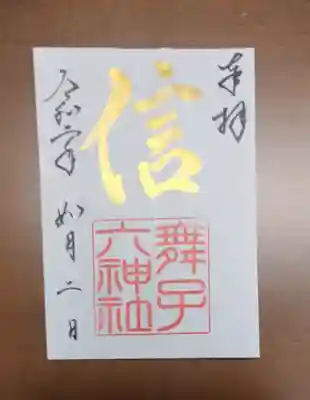 奉拝
信
舞子
六神社
令和 年 如月二日